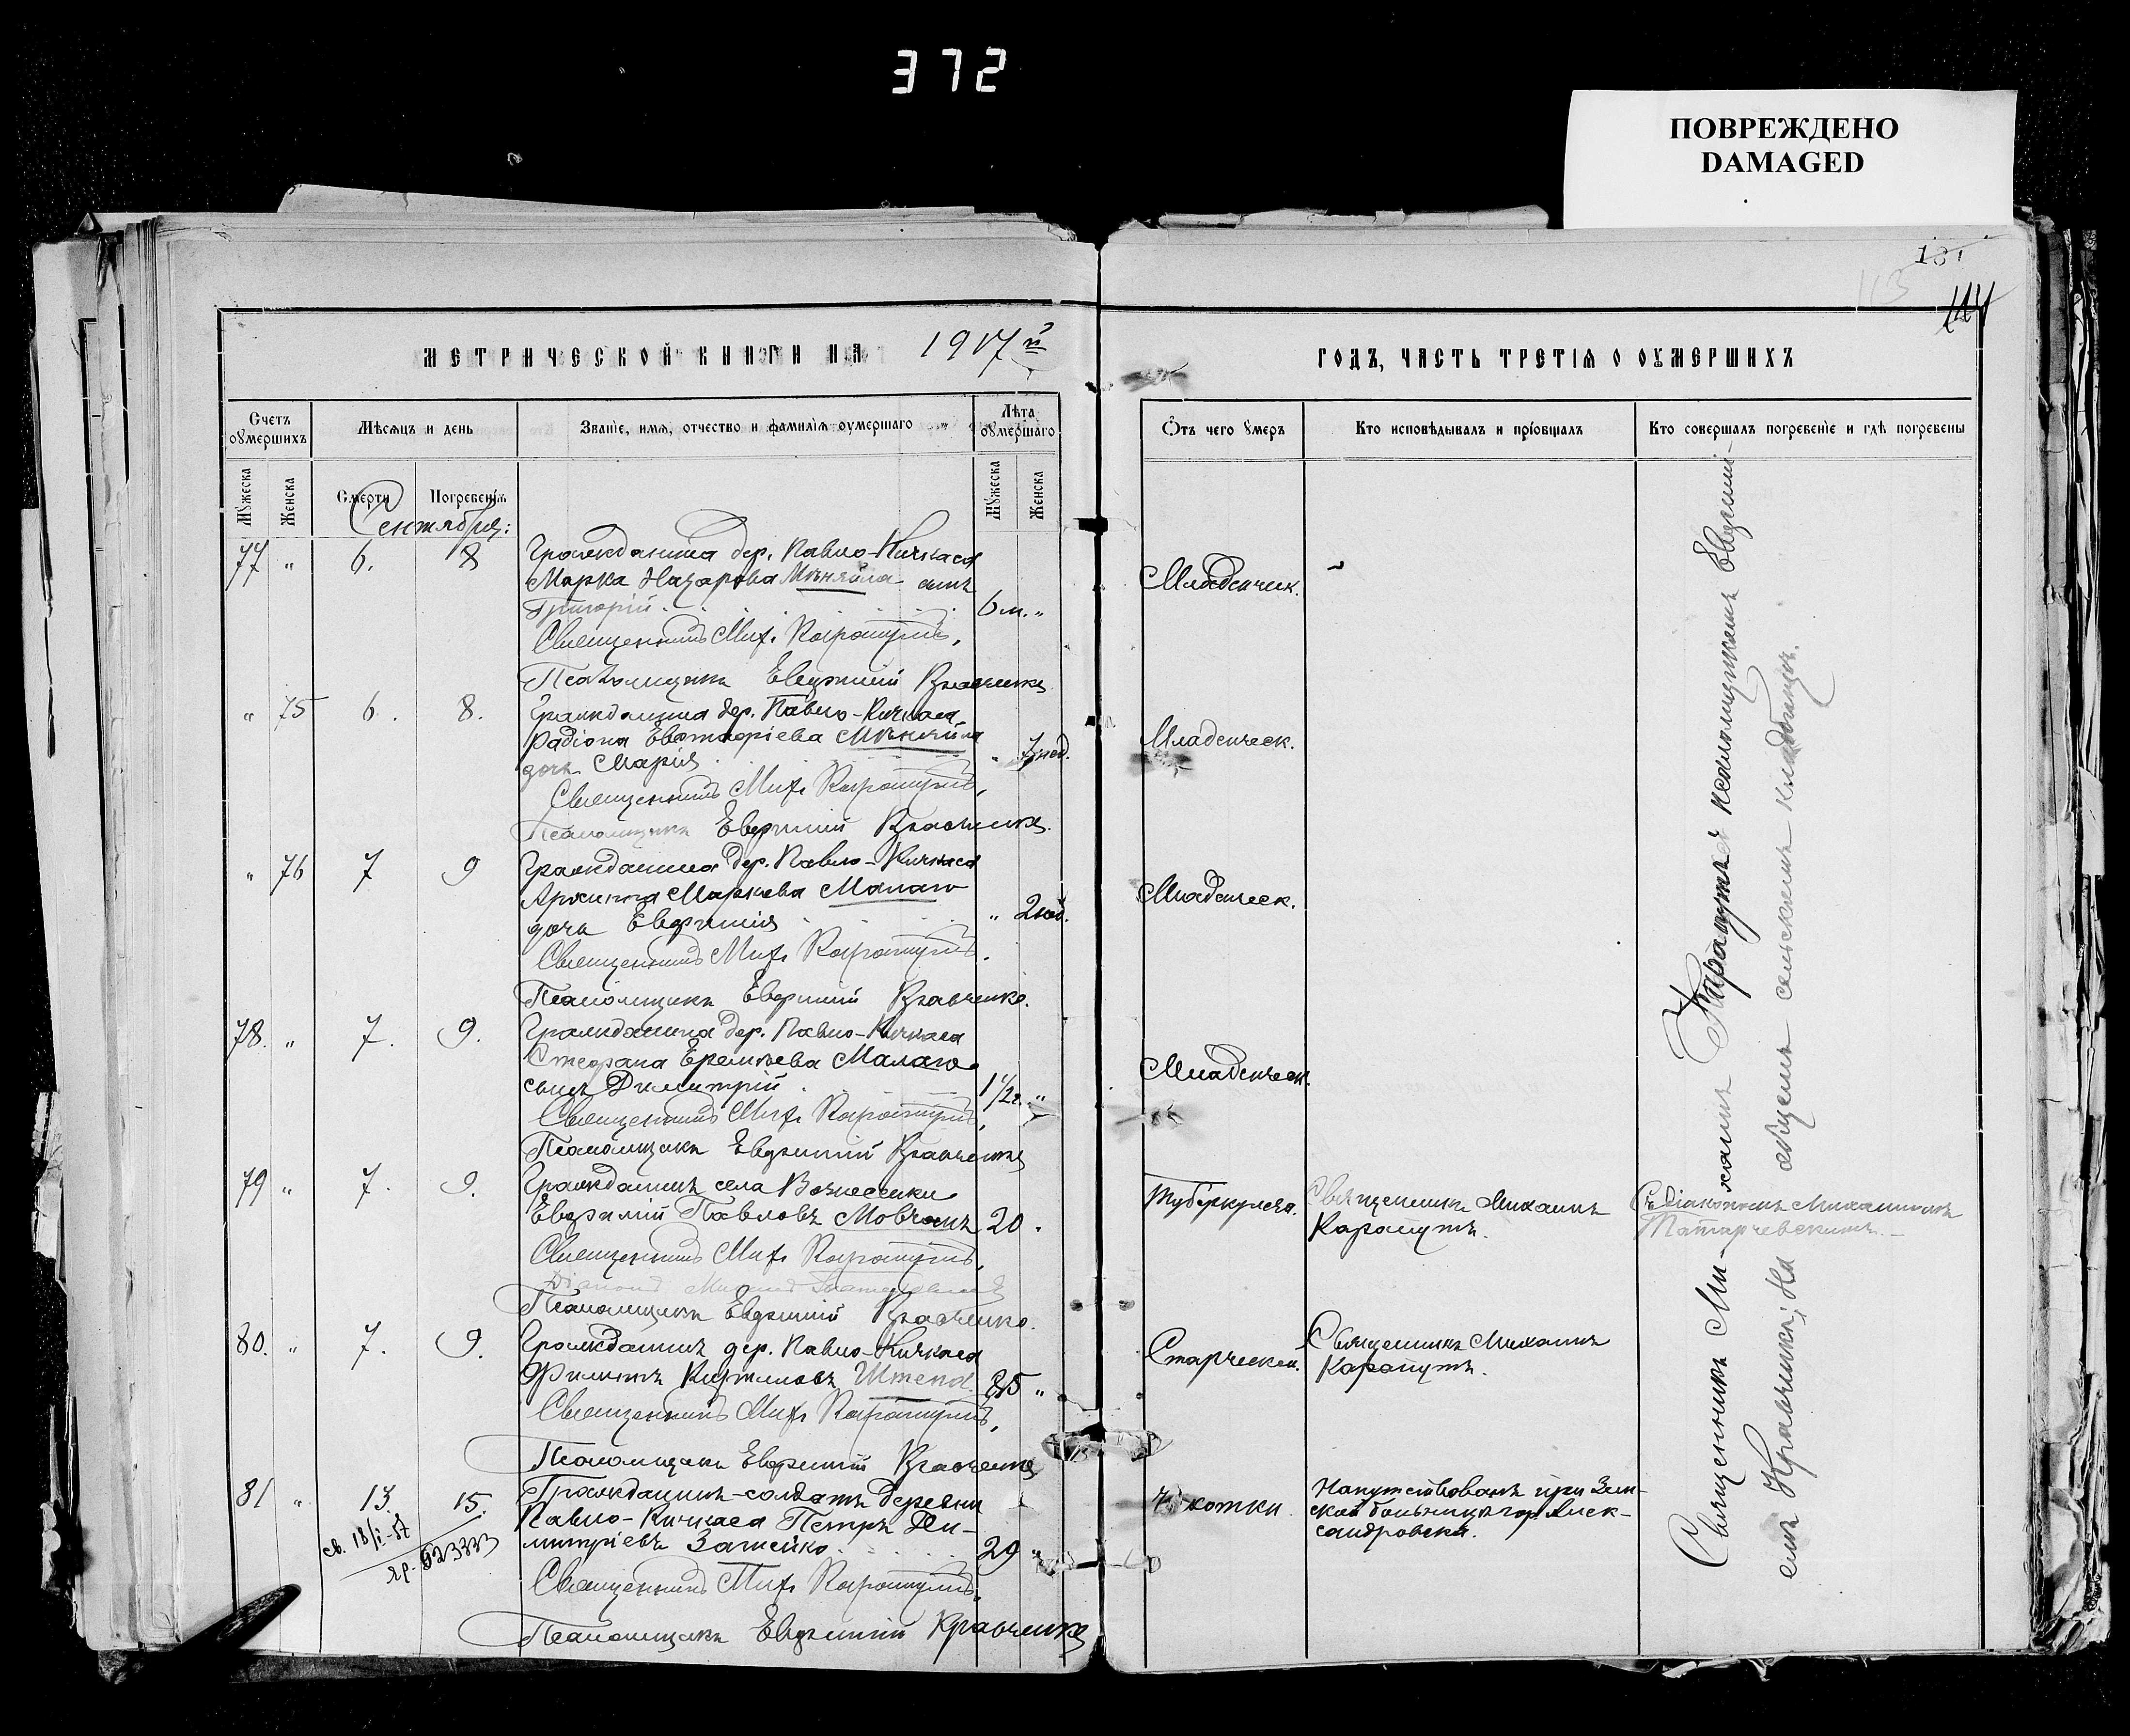 372
ПОВРЕЖДЕНО
DAMAGED
МЕТРИЧЕСКОЙ КНИГИ НА 1917й
ГОДЪ, ЧАСТЬ ТРЕТІѦ О ОУМЕРШИХЪ
Счетъ оумершихъ
Мѣсяцъ и день
Званіе, имя, отчество и фамилія оумершаго
Лѣта оумершаго
Ѿтъ чего умеръ
Кто исповѣдывалъ и пріобщалъ
Кто совершалъ погребеніе и гдѣ погребены
Мужеска
Женска
Смерти
Погребенія
Мужеска
Женска
Сентября:
77 " 6. 8 Гражданина дер. Павло-Кичкаса
Марка Назарова Миняйла сынъ
Григорій 6 м. " Младенческ.
Священникъ Мих. Карапутъ,
Псаломщикъ Евфимій Кравченко
" 75 6. 8. Гражданина дер. Павло-Кичкаса
Радіона Евстафіева Миняйла
дочь Марія " 7 нед. Младенческ.
Священникъ Мих. Карапутъ,
Псаломщикъ Евфимій Кравченко.
" 76 7 9 Гражданина дер. Павло-Кичкаса
Архиппа Маркова Малаго
дочь Евфимія " 2 нед. Младенческ.
Священникъ Мих. Карапутъ.
Псаломщикъ Евфимій Кравченко.
78. " 7. 9. Гражданина дер. Павло-Кичкаса
Стефана Еремѣева Малаго
сынъ Димитрій 1 1/2 г. " Младенческ.
Священникъ Мих. Карапутъ,
Псаломщикъ Евфимій Кравченко
79 " 7. 9. Гражданинъ села Вознесенки
Евфимій Павловъ Мовчанъ 20 .
Туберкулеза. Священникъ Михаилъ
Карапутъ.
Съ діакономъ Михаиломъ
Татарчевскимъ.
Священникъ Мих. Карапутъ,
Псаломщикъ Евфимій Кравченко.
80. " 7. 9. Гражданинъ дер. Павло-Кичкаса
Филиппъ Кирилловъ Штепа. 85 "
Старческ. Священникъ Михаилъ
Карапутъ.
Священникъ Мих. Карапутъ,
Псаломщикъ Евфимій Кравченко
81 " 13. 15. Гражданинъ-солдатъ деревни
Павло-Кичкаса Петръ Ди-
митріевъ Затейко 29 "
св. 18/I-57
Чахотки. Напутствованъ при Зем-
ской больницѣ гор. Алек-
сандровска.
Священникъ Мих. Карапутъ,
Псаломщикъ Евфимій Кравченко
Священникъ Ми-хаилъ Карапутъ съ псаломщикомъ Евфимі-
емъ Кравченко; На общемъ сельскомъ кладбищѣ.